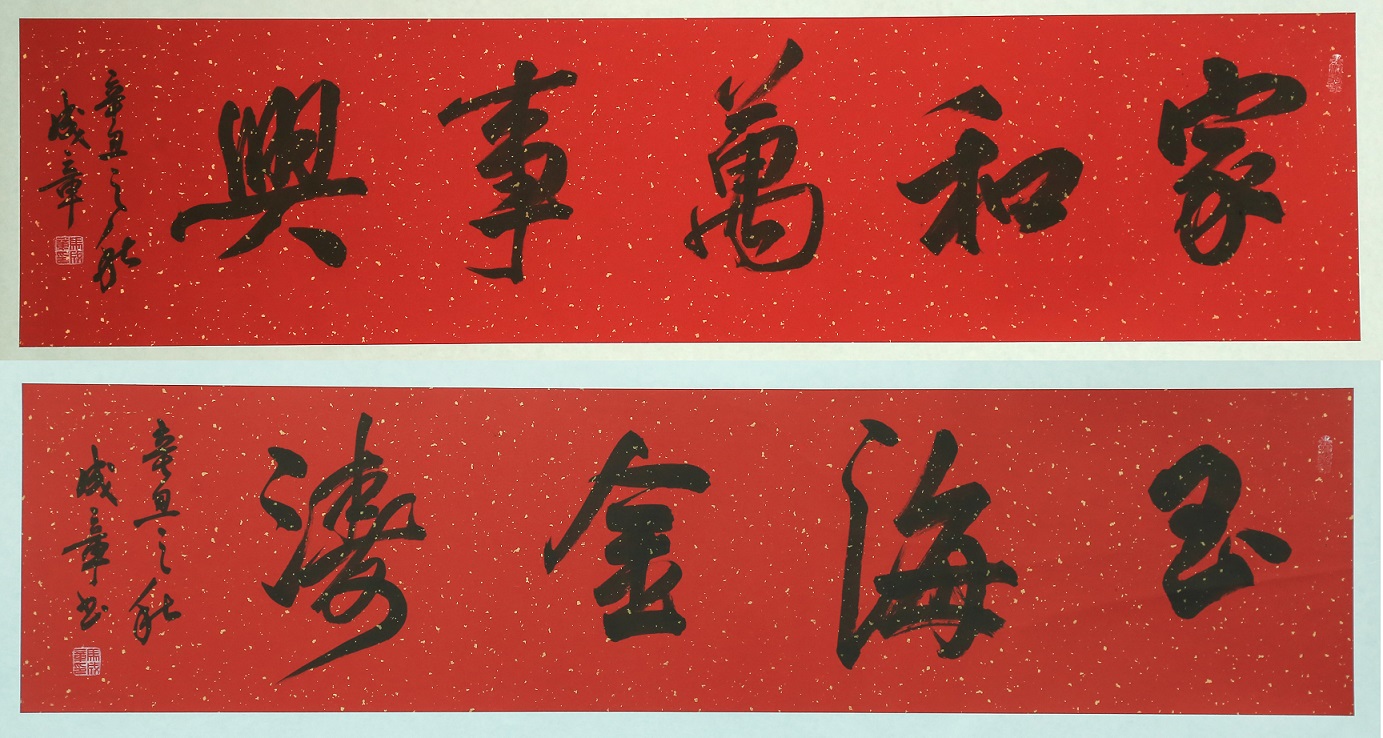 家和萬事興
辛丑之秋
成章
玉海金濤
辛丑之秋
成章书